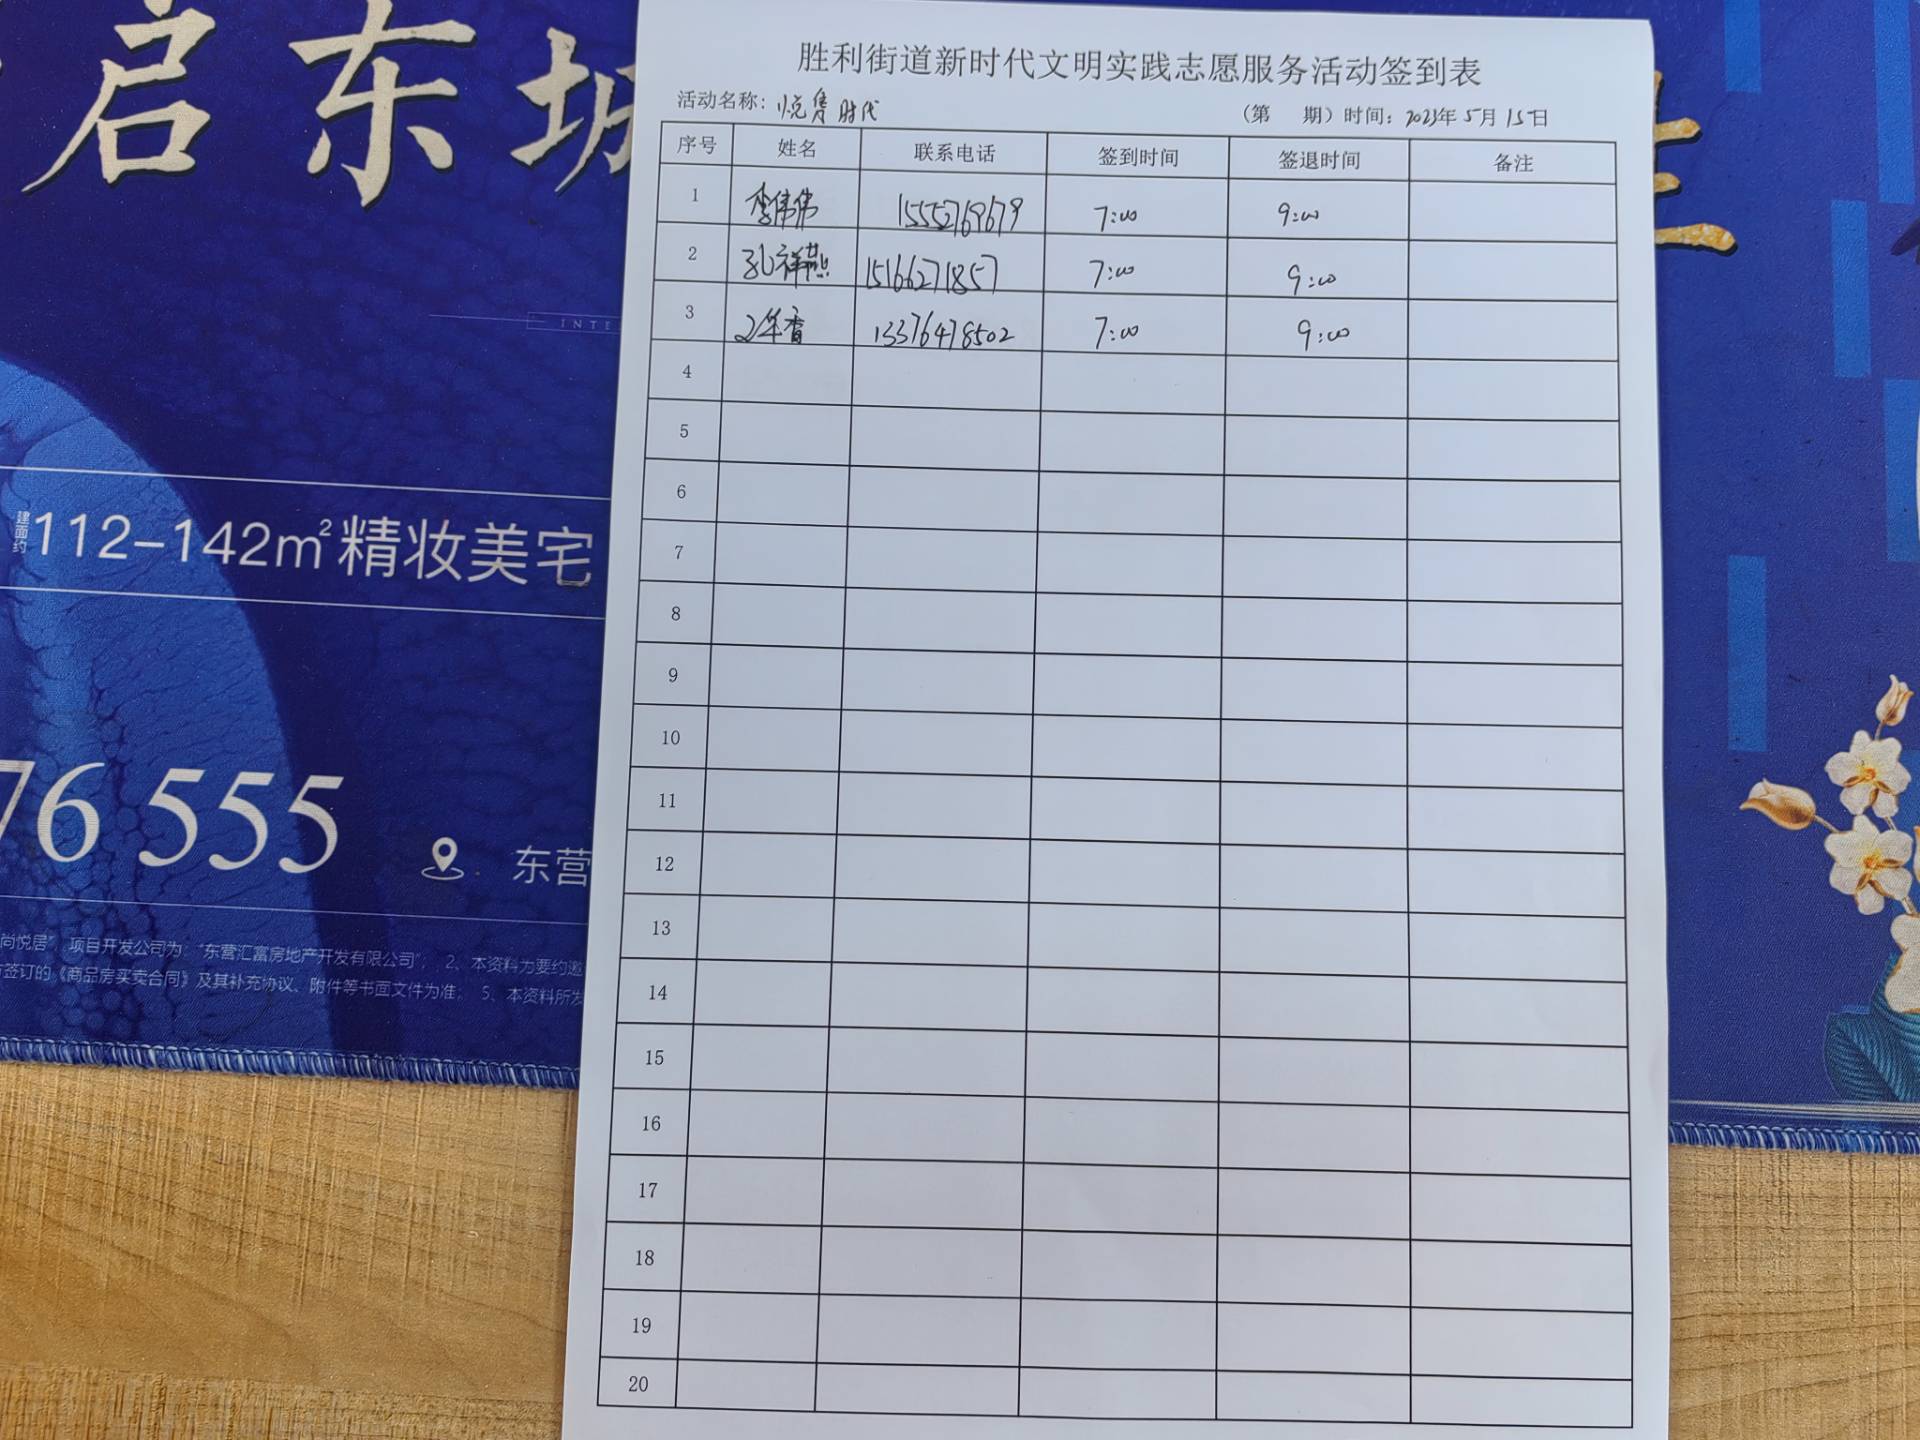 启东城
INTE
建面约112-142m²精妆美宅
76 555
东营
尚悦居”，项目开发公司为：“东营汇富房地产开发有限公司”； 2、本资料为要约邀
签订的《商品房买卖合同》及其补充协议、附件等书面文件为准。 5、本资料所发
胜利街道新时代文明实践志愿服务活动签到表
活动名称：悦隽时代 （第 期）时间：2023年5月15日
序号 姓名 联系电话 签到时间 签退时间 备注
1 李伟伟 15552769679 7:00 9:00
2 孔祥燕 15166271857 7:00 9:00
3 13376478502 7:00 9:00
4
5
6
7
8
9
10
11
12
13
14
15
16
17
18
19
20